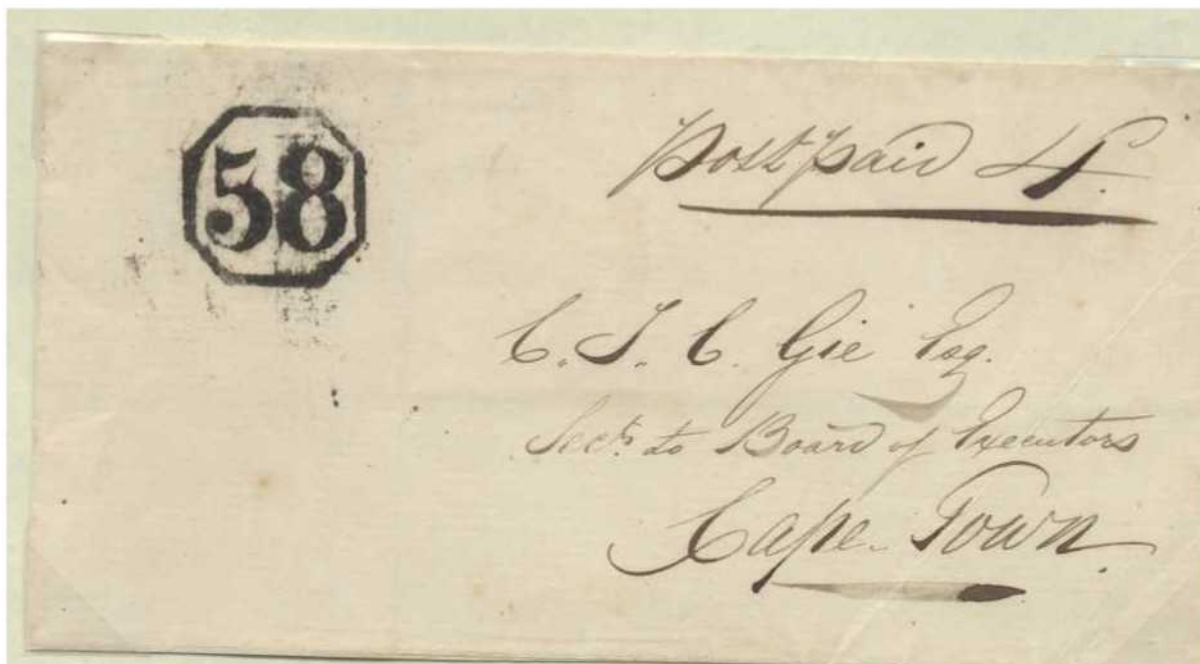 58
Post paid 4.
C. J. C. Gie Esq.
Secty. to Board of Executors
Cape Town.